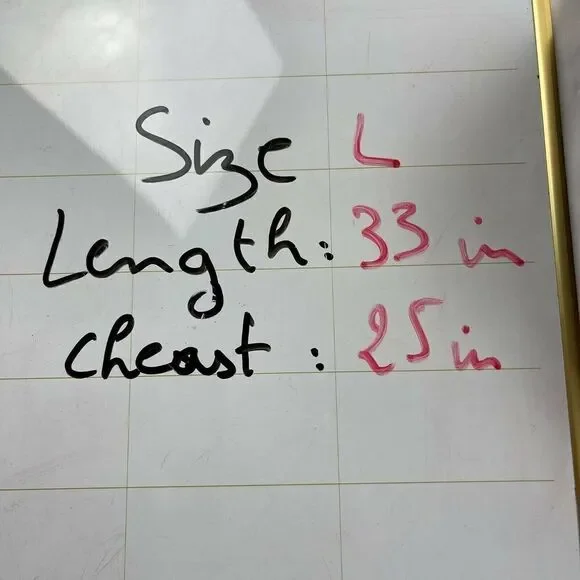 Size L
Length: 33 in
cheast : 25 in